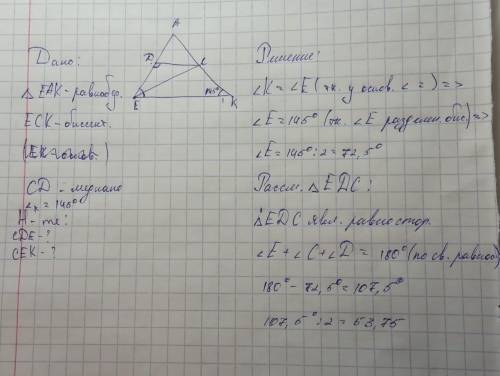 Дано:
△ EAK - равнобед.
ECK - биссект.
(EK основ.)
CD - медиана
∠K = 145°
Н - ти:
CDE - ?
CEK - ?
A
D
C
145°
E
K
Решение:
∠K = ∠E (тк. у основ. ∠ =) =>
∠E = 145° (тк. ∠E разделен. бис.) =>
∠E = 145° : 2 = 72,5°
Рассм. △ EDC:
△EDC явл. равностор.
∠E + ∠C + ∠D = 180° (по св. равноб.)
180° - 72,5° = 107,5°
107,5° : 2 = 53,75